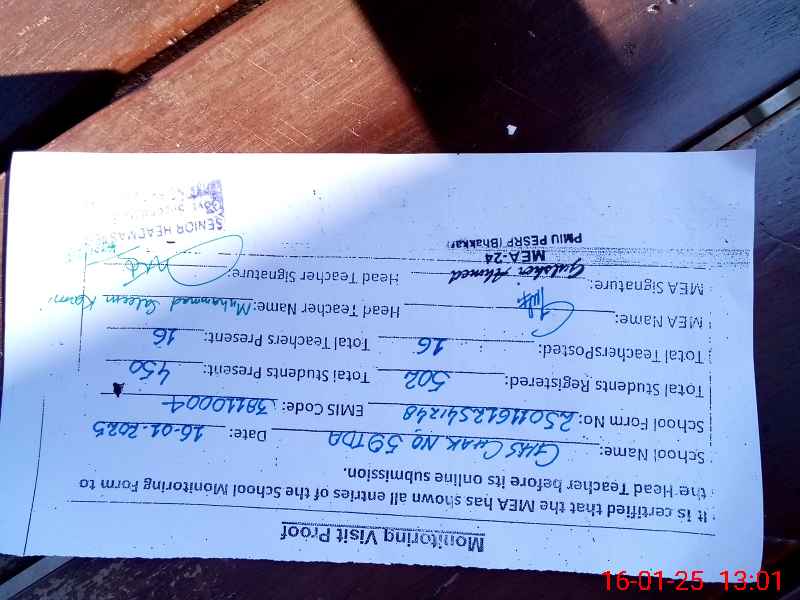 Monitoring Visit Proof
It is certified that the MEA has shown all entries of the School Monitoring Form to
the Head Teacher before its online submission.
School Name: GHSS CHAK NO 59TDA Date: 16-01-2025
School Form No: EMIS Code: 38110004
Total Students Registered: 502 Total Students Present: 450
Total TeachersPosted: 16 Total Teachers Present: 16
MEA Name: Head Teacher Name: Muhammed Saleem
MEA Signature: Gulsher Ahmed Head Teacher Signature:
MEA-24
PMIU PESRP (Bhakkar)
SENIOR HEADMAS
16-01-25 13:01